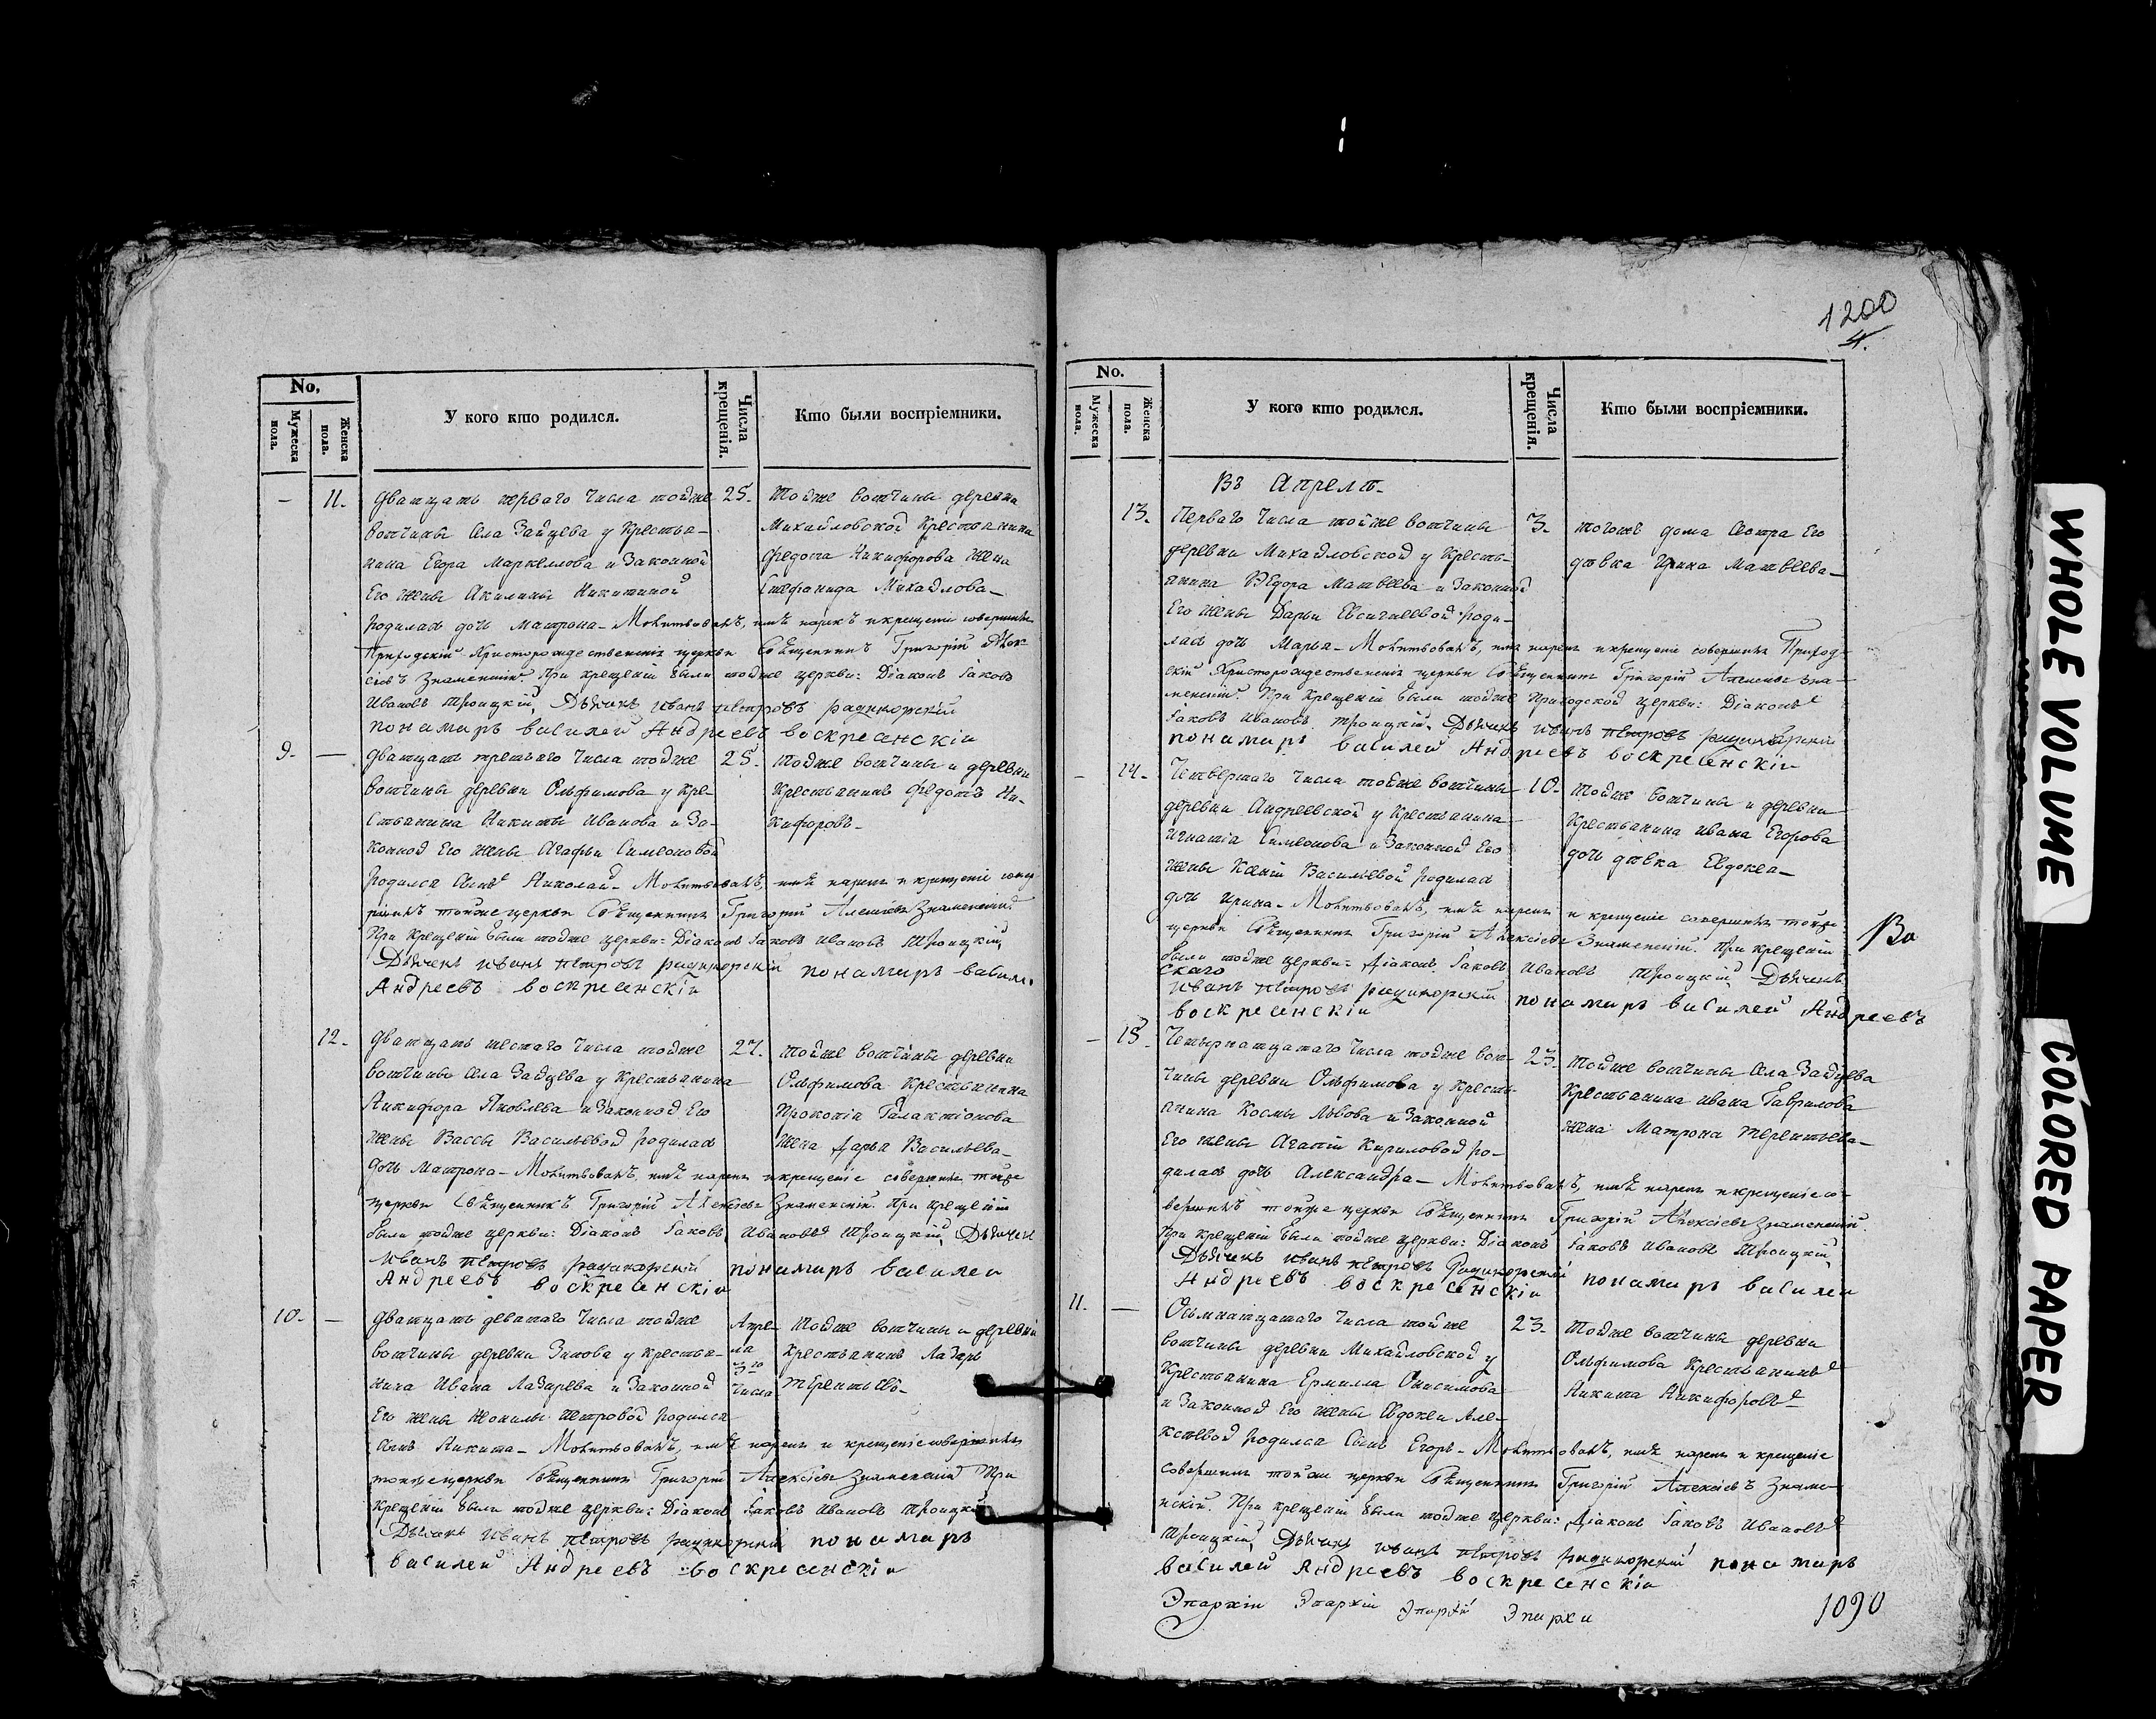 No.
Мужеска пола.
Женска пола.
У кого кто родился.
Числа крещенія.
Кто были воспріемники.
- 11. Дватцать перваго числа тойже
вотчины села Зайцева у крестья-
нина Егора Маркеллова и законной
его жены Акилины Никитиной
родилась дочь Матрона - Молитвовалъ, имя нарекъ и крещение совершилъ
Приходскій Христорождественскія церкви Священникъ Григорій Алек-
сіевъ Знаменскій. При крещеніи были тойже церкви: Діаконъ Іаковъ
Ивановъ Троицкій, Дьячекъ Иванъ Петровъ
пономарь Василей Андреевъ Воскресенскій
25. Тойже вотчины деревни
Михайловской крестьянина
Федота Никифорова жена
Стефанида Михайлова
9. — Дватцать третьяго числа тойже
вотчины деревни Ольфимова у кре-
стьянина Никиты Иванова и за-
конной его жены Агафьи Симеоновой
родился сынъ Николай - Молитвовалъ, имя нарекъ и крещеніе сове-
ршилъ тойже церкви Священникъ Григорій Алексіевъ Знаменскій.
При крещеніи были тойже церкви: Діаконъ Іаковъ Ивановъ Троицкій,
Дьячекъ Иванъ Петровъ пономарь Василей
Андреевъ Воскресенскій
25. Тойже вотчины и деревни
крестьянинъ Федотъ Ни-
кифоровъ
12. Дватцать шестаго числа тойже
вотчины села Зайцева у крестьянина
Никифора Яковлева и законной его
жены Вассы Васильевой родилась
дочь Матрона - Молитвовалъ, имя нарекъ и крещеніе совершилъ тойже
церкви Священникъ Григорій Алексіевъ Знаменскій. При крещеніи
были тойже церкви: Діаконъ Іаковъ Ивановъ Троицкій, Дьячекъ
Иванъ Петровъ пономарь Василей
Андреевъ Воскресенскій
27. Тойже вотчины деревни
Ольфимова крестьянина
Прокопія Галактіонова
жена Дарья Васильева
10. — Дватцать девятаго числа тойже
вотчины деревни Зинова у крестья-
нина Ивана Лазарева и законной
его жены Неонилы Петровой родился
сынъ Никита - Молитвовалъ, имя нарекъ и крещеніе совершилъ
тойже церкви Священникъ Григорій Алексіевъ Знаменскій При
крещеніи были тойже церкви: Діаконъ Іаковъ Ивановъ Троицкій
Дьячекъ Иванъ Петровъ пономарь
Василей Андреевъ Воскресенскій
Апре-
ля
3го
числа
Тойже вотчины и деревни
крестьянинъ Лазарь
Терентьевъ
1200
4.
No.
Мужеска пола.
Женска пола.
У кого кто родился.
Числа крещенія.
Кто были воспріемники.
Въ Апрелѣ
13. Перваго числа тойже вотчины
деревни Михайловской у кресть-
янина Ѳедора Матвеева и законной
его жены Дарьи Евсигнеевой роди-
лась дочь Марья - Молитвовалъ, имя нарекъ и крещеніе совершилъ Приход-
скій Христорождественскія церкви Священникъ Григорій Алексіевъ Зна-
менскій При крещеніи были тойже приходской церкви: Діаконъ
Іаковъ Ивановъ Троицкій, Дьячекъ Иванъ Петровъ
пономарь Василей Андреевъ Воскресенскій
3. тогожъ дома сестра его
дѣвка Ирина Матвеева
- 14. Четвертаго числа тойже вотчины
деревни Андреевской у крестьянина
Игнатія Симеонова и законной его
жены Ксеніи Васильевой родилась
дочь Ирина - Молитвовалъ, имя нарекъ и крещеніе совершилъ тойже
церкви Священникъ Григорій Алексіевъ Знаменскій. При крещеніи
были тойже церкви: Діаконъ Іаковъ Ивановъ Троицкій, Дьячекъ
скаго
Иванъ Петровъ пономарь Василей Андреевъ
Воскресенскій
10. Тойже вотчины и деревни
крестьянина Ивана Егорова
дочь дѣвка Евдокея
Во
- 15. Четырнатцатаго числа тойже вот-
чины деревни Ольфимова у кресть-
янина Космы Львова и законной
его жены Агапіи Кириловой ро-
дилась дочь Александра - Молитвовалъ, имя нарекъ и крещеніе со-
вершилъ тойже церкви Священникъ Григорій Алексіевъ Знаменскій.
При крещеніи были тойже церкви: Діаконъ Іаковъ Ивановъ Троицкій,
Дьячекъ Иванъ Петровъ пономарь Василей
Андреевъ Воскресенскій
23. Тойже вотчины села Зайцева
крестьянина Ивана Гаврилова
жена Матрона Терентьева
11. — Осьмнатцатаго числа тойже
вотчины деревни Михайловской у
крестьянина Ермилла Онисимова
и законной его жены Евдокеи Але-
ксѣевой родился сынъ Егоръ - Молитвовалъ, имя нарекъ и крещеніе
совершилъ тойже церкви Священникъ Григорій Алексіевъ Знаме-
нскій. При крещеніи были тойже церкви: Діаконъ Іаковъ Ивановъ
Троицкій, Дьячекъ Иванъ Петровъ пономарь
Василей Андреевъ Воскресенскій
23. Тойже вотчины деревни
Ольфимова крестьянинъ
Никита Никифоровъ
Эпархіи Эпархіи Эпархіи Эпархи
1090
WHOLE VOLUME
COLORED PAPER